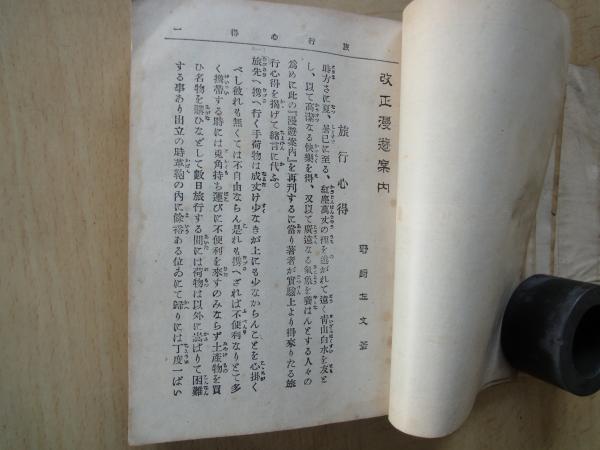 旅行心得
一
改正漫遊案内
野崎左文著
旅行心得
時方さに夏、暑已に至る、紅塵萬丈の裡を逃がれて遠く靑山白水を友と
し、以て高潔なる快樂を得、又以て廣遠なる氣魚を養はんとする人々の
爲めに此の『漫遊案内』を再刊するに當り著者が實驗上より得來りたる旅
行心得を揭げて緖言に代ふ。
『旅先へ携へ行く手荷物は成丈け少なきが上にも少なからんことを心掛く
べし彼れも無くては不自由ならん是れも携へざれば不便利なりとて多
く携帶する時には兎角持ち運びに不便利を來すのみならず土產物を買
ひ名物を購ひなどして數日旅行する間には荷物は以外に嵩ばりて困難
する事あり出立の時革鞄の内に餘裕ある位ゐにて歸りには丁度一ぱい